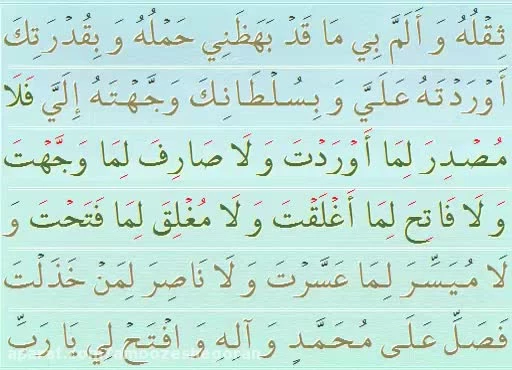 ثِقْلُهُ وَ أَلَمَّ بِي مَا قَدْ بَهَظَنِي حَمْلُهُ وَ بِقُدْرَتِكَ
أَوْرَدْتَهُ عَلَيَّ وَ بِسُلْطَانِكَ وَجَّهْتَهُ إِلَيَّ فَلَا
مُصْدِرَ لِمَا أَوْرَدْتَ وَ لَا صَارِفَ لِمَا وَجَّهْتَ
وَ لَا فَاتِحَ لِمَا أَغْلَقْتَ وَ لَا مُغْلِقَ لِمَا فَتَحْتَ وَ
لَا مُيَسِّرَ لِمَا عَسَّرْتَ وَ لَا نَاصِرَ لِمَنْ خَذَلْتَ
فَصَلِّ عَلَى مُحَمَّدٍ وَ آلِهِ وَ افْتَحْ لِي يَا رَبِّ